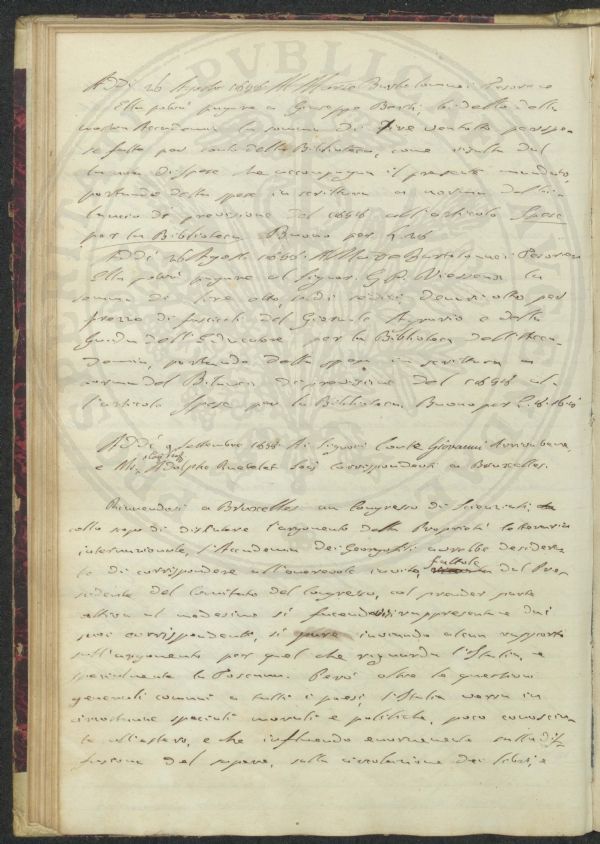 Addì 26 Agosto 1858 Al Marco Bartolommei Tesoriere
Ella potrà pagare a Giuseppe Bechi, bidello della
nostra Accademia la somma di Lire ventotto per spe-
se fatte per conto della Biblioteca, come risulta dal
la nota di spese che accompagna il presente mandato,
portando detta spesa in scrittura a norma del bi-
lancio di previsione del 1858 all'articolo Spese
per la Biblioteca Buono per £ 28
Addì 26 Agosto 1858. Al Marco Bartolommei Tesoriere
Ella potrà pagare al Signor G. P. Vieusseux la
somma di Lire otto, soldi sedici, denari otto per
prezzo di fascicoli del Giornale Agrario e della
Guida dell'Educatore per la Biblioteca dell'Acca-
demia, portando detta spesa in scrittura a
norma del Bilancio di previsione del 1858 al-
l'articolo Spese per la Biblioteca. Buono per £. 8.16.8
Addì 9 Settembre 1858 Ai Signori Conte Giovanni Arrivabene,
e Mr. Adolphe Quetelet Soci corrispondenti a Bruxelles.
Riunendosi a Bruxelles un Congresso di Scienziati,
collo scopo di discutere l'argomento della Proprietà letteraria
internazionale, l'Accademia dei Georgofili avrebbe desidera-
to di corrispondere all'onorevole invito, fattole dal Pre-
sidente del Comitato del Congresso, col prender parte
attiva al medesimo sì facendosi rappresentare dai
suoi corrispondenti, sì pure inviando alcun rapporto
sull'argomento per quel che riguarda l'Italia, e
specialmente la Toscana. Però oltre le questioni
generali comuni a tutti i paesi, l'Italia versa in
circostanze speciali morali e politiche, poco conosciu-
te all'estero, e che influendo enormemente sulla dif-
fusione del sapere, sulla circolazione dei libri, e